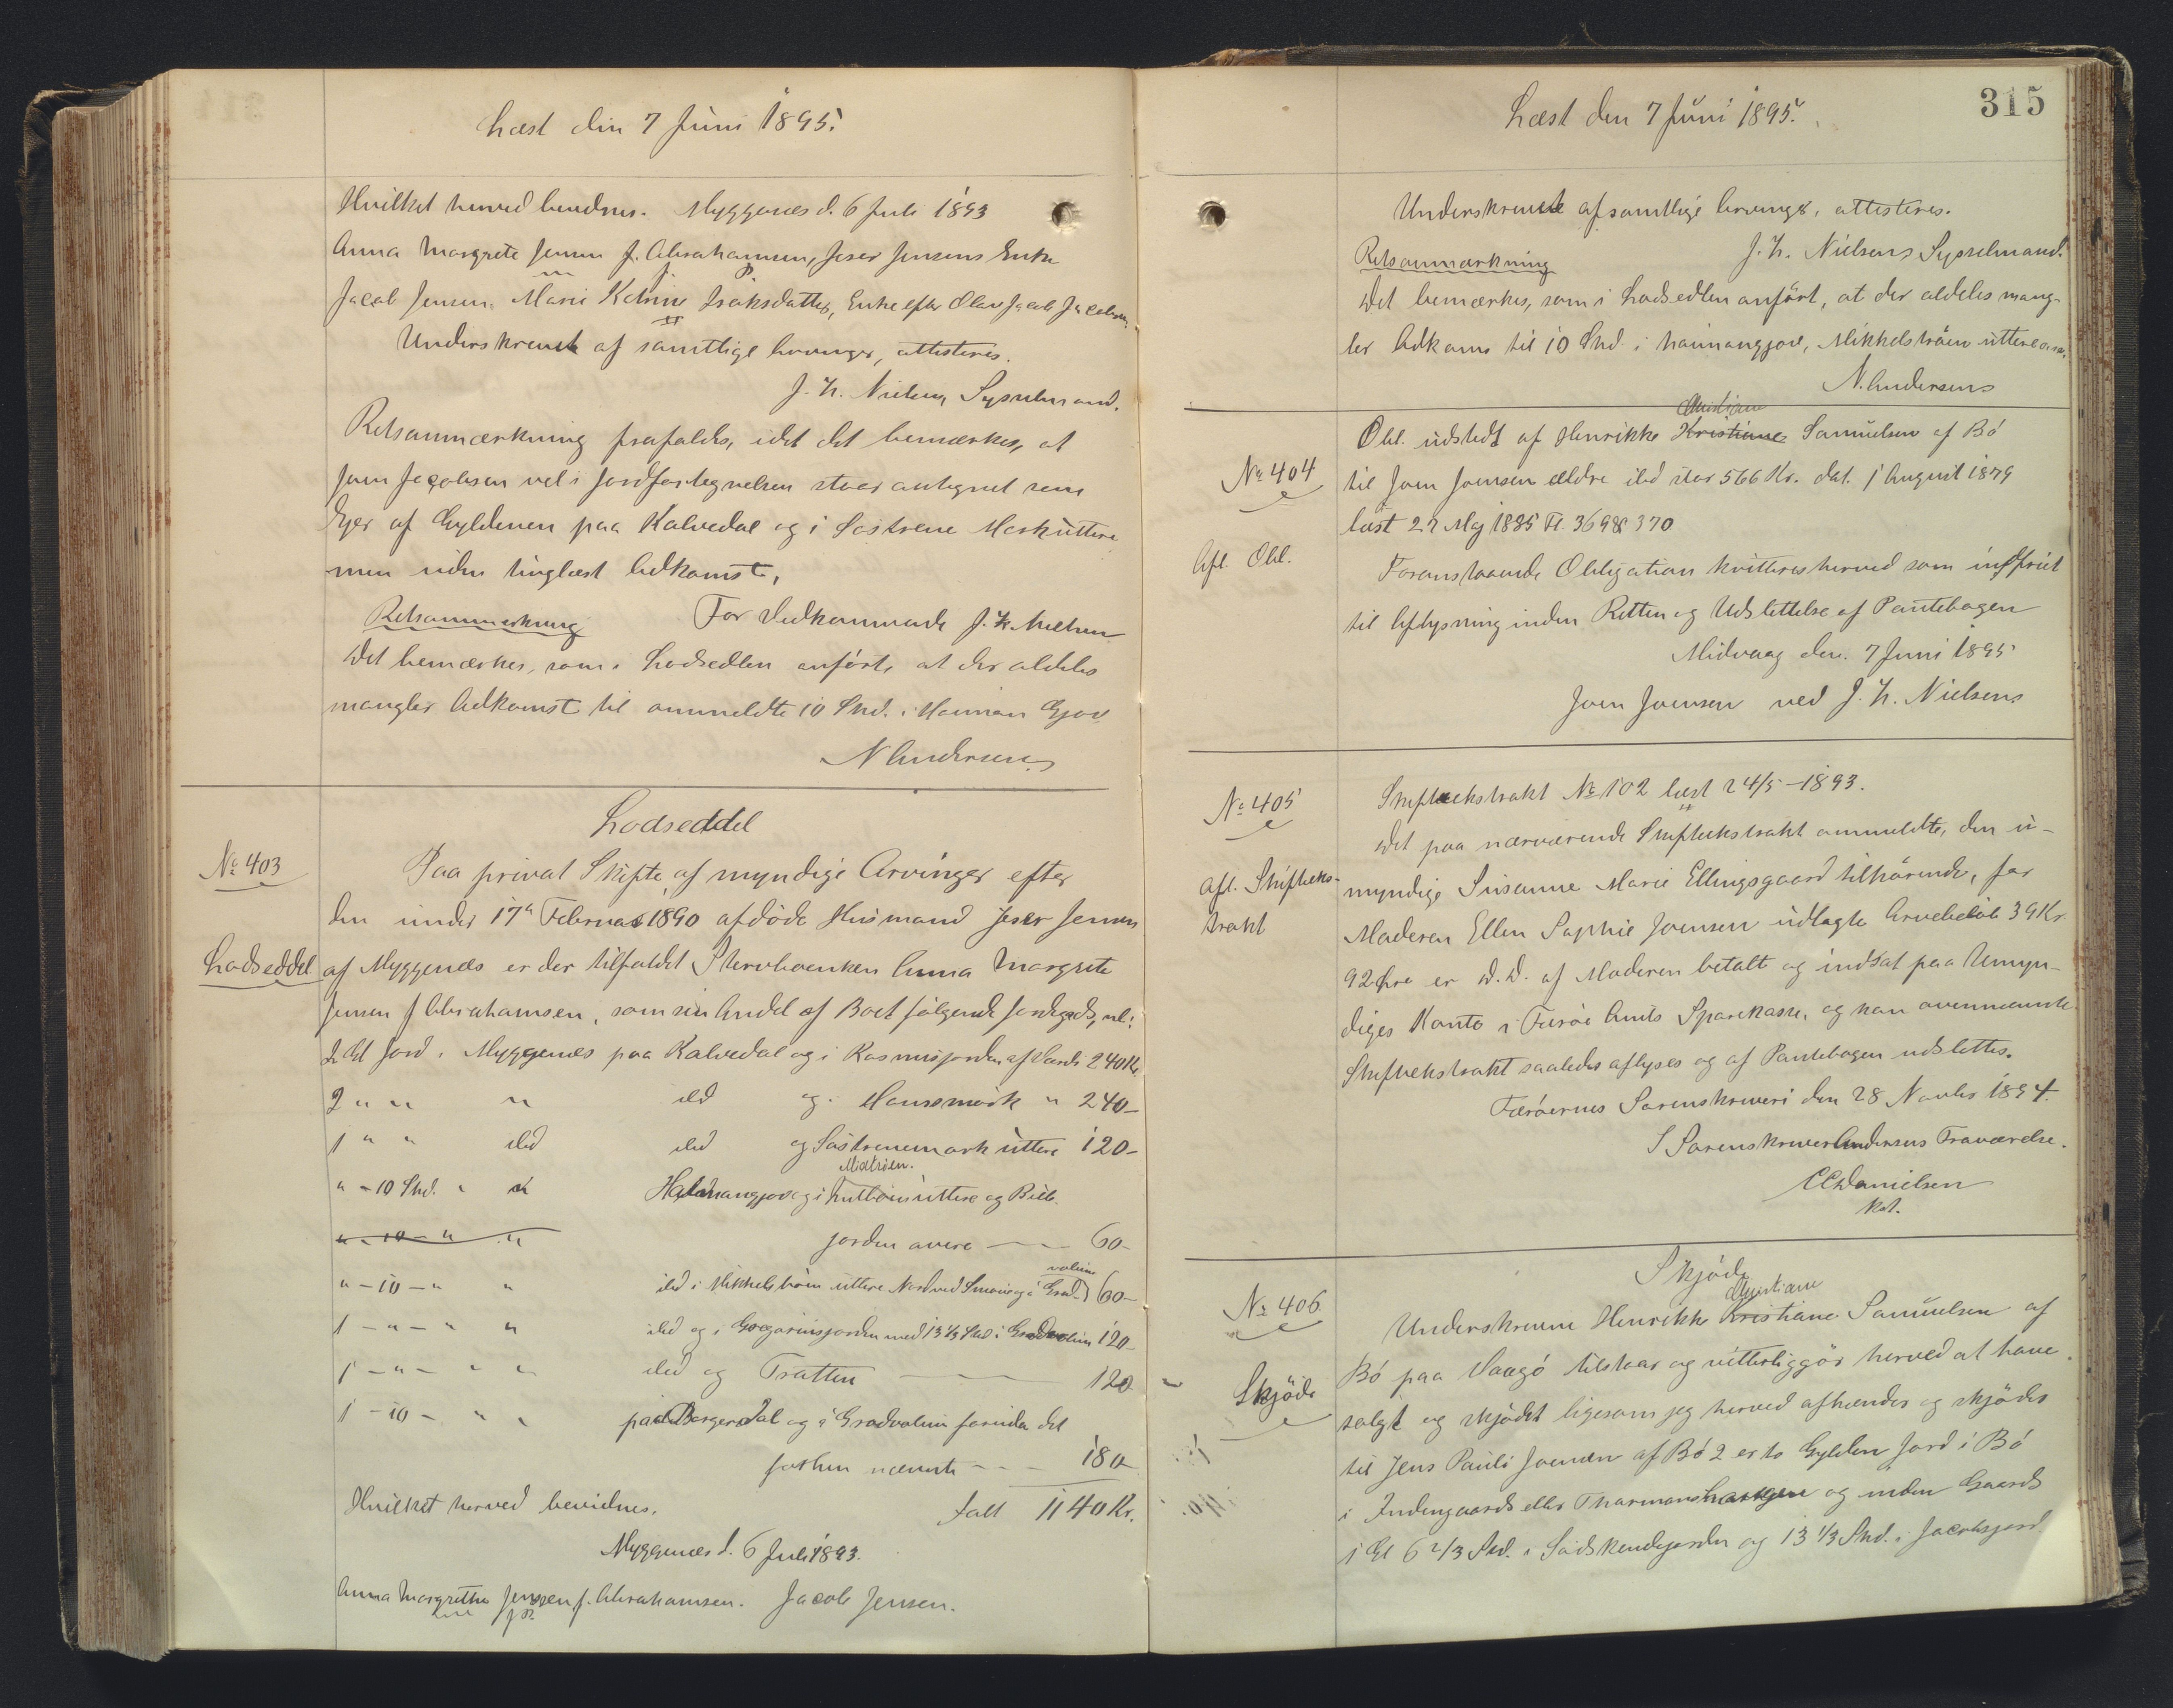 Læst den 7 Juni 1895.
Hvilket herved bevidnes. Myggenæs d. 6 Juli 1893
Anna Margrete Jensen f. Abrahamsen, Joser Jensens Enke
Jacob Jensen. Marie Katrine Isaksdatter, Enke efter Olav Jacob Jacobsen.
Underskrevet af samtlige Arvinger, attesteres.
J. H. Nielsen, Sysselmand.
Retsanmærkning frafaldes, idet det bemærkes, at
Joen Jacobsen vel i Jordfortegnelsen staar antegnet som
Ejer af Gyldenen paa Kalvedal og i Søstrene Mark uttere
men uden tinglæst Adkomst,
Retsanmærkning For Vedkommende J. H. Nielsen
Det bemærkes, som i Lodsedlen anført, at der aldeles
mangler Adkomst til ommeldte 10 Skd. i Hannan Gjov
N Andersen
Lodseddel
No 403
Paa privat Skifte af myndige Arvinger efter
den under 17de Februar 1890 afdøde Husmand Joser Jensen
Lodseddel
af Myggenæs er der tilfaldet Stervboenken Anna Margrete
Jensen f Abrahamsen, som sin Andel af Boet følgende Jordegods, nl:
2 Gl Jord i Myggenæs paa Kalvedal og i Rasmusjorden af Værdi 240 Kr.
2 " " " ibd og i Hansemark " 240-
1 " " ibd ibd og Søstrenemark uttere 120-
" - 10 Skd. " og i uttere og
jorden avere 60-
" - 10 - " "
" - 10 - " " ibd i Mikkelstrøin uttere Nord ved og i Grad-volin 60-
1 - " - " " ibd og i Gregoriusjorden med 13 1/3 Skd i Gradvolin 120-
1 - " - " " ibd og Trøtten 120
1 - 10 - " " paa Borgardal og i Gradvolin foruden det
forhen nævnte 180
Hvilket herved bevidnes. Ialt 1140 Kr.
Myggenæs d. 6 Juli 1893.
Anna Margrethe Jensen f. Abrahamsen. Jacob Jensen.
315
Læst den 7 Juni 1895.
Underskrevet af samtlige Arvinger, attesteres.
J. H. Nielsen, Sysselmand.
Retsanmærkning
Det bemærkes, som i Lodsedlen anført, at der aldeles mang-
ler Adkomst til 10 Skd. i Hannangjov, Mikkelstrøin uttere
N. Andersen
Christiane
No 404
Obl. udstedt af Henrikke Kristiane Samuelsen af Bø
til Joen Joensen ældre ibd stor 566 Kr. dat. 1 August 1879
læst 27 Maj 1885 Fl. 369 & 370
Afl. Obl.
Foranstaaende Obligation kvitteres herved som indfriet
til Aflysning inden Retten og Udslettelse af Pantebogen
Midvaag den 7 Juni 1895
Joen Joensen ved J. H. Nielsen
No 405
Skifteekstrakt No 102 læst 24/5-1893.
Det paa nærværende Skifteekstrakt ommeldte, den u-
Afl. Skifteeks-
trakt
myndige Susanne Marie Ellingsgaard tilhørende, for
Moderen Ellen Sophie Joensen udlagte Arvebeløb 39 Kr.
92 Øre er D.D. af Moderen betalt og indsat paa Umyn-
diges Konto i Færø Amts Sparekasse, og kan ovennævnte
Skifteekstrakt saaledes aflyses og af Pantebogen udslettes.
Færøernes Sorenskriveri den 28 Novbr 1894.
I Sorenskriver Andersens Fraværelse.
CC Danielsen
Kst.
Skjøde
Christiane
No 406
Underskrevne Henrikke Kristiane Samuelsen af
Bø paa Vaagø tilstaar og vitterliggør herved at have
Skjøde
solgt og skjødet ligesom jeg herved afhænder og skjøder
til Jens Pauli Joensen af Bø 2 er to Gylden Jord i Bø
i Indengaards eller og inden Gaards
1 Gl 6 2/3 Skd. i Sødskendejorden og 13 1/3 Skd. i Jacobsjord